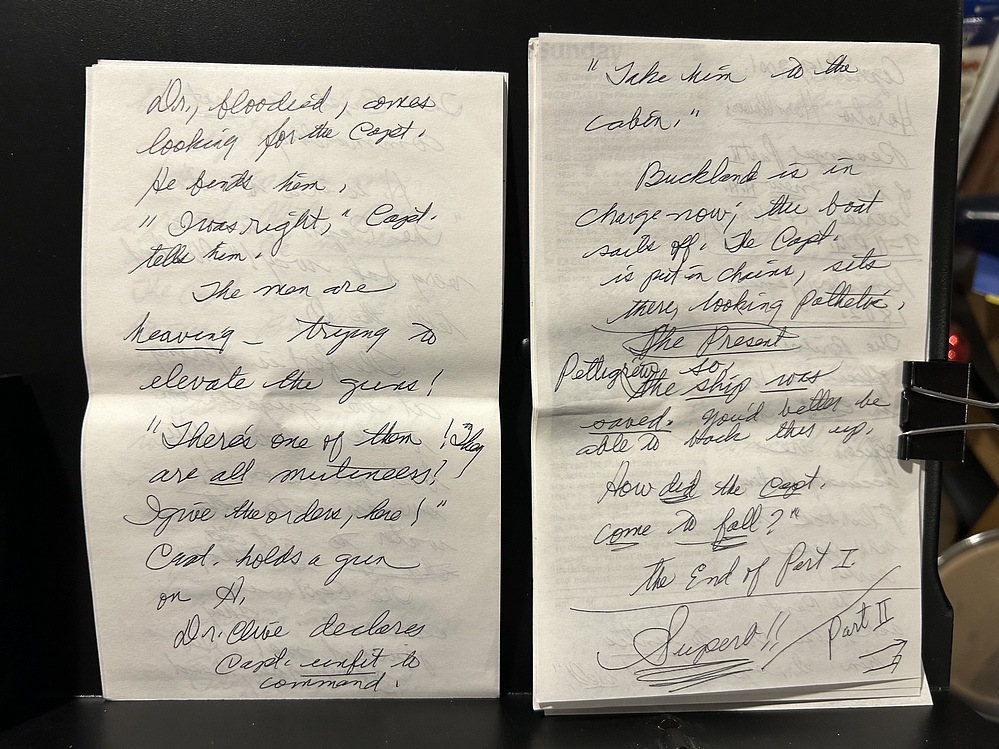 Dr., bloodied, comes
looking for the Capt.
He finds him.
"I was right," Capt.
tells him.
The men are
heaving – trying to
elevate the guns!
"There's one of them! They
are all mutineers!
I give the orders, here!"
Capt. holds a gun
on H.
Dr. Clive declares
Capt. unfit to
command.
"Take him to the
cabin."
Buckland is in
charge now; the boat
sails off. The Capt.
is put in chains, sits
there, looking pathetic.
The Present
Pettigrew so
the ship was
saved. You'd better be
able to back this up.
How did the Capt.
come to fall?"
the End of Part I.
Superb!!
Part II